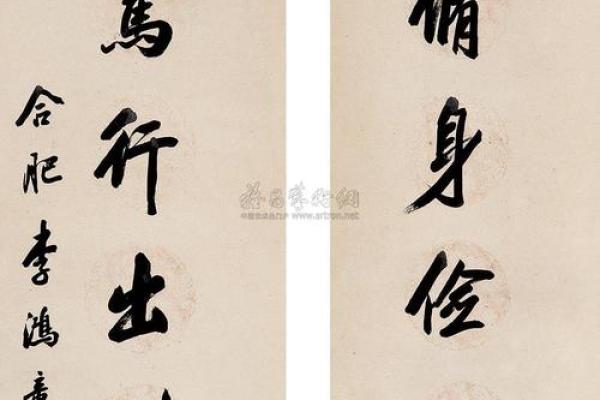 脩身儉
馬行出
合肥李鴻章
雅昌藝術網
www.artron.net